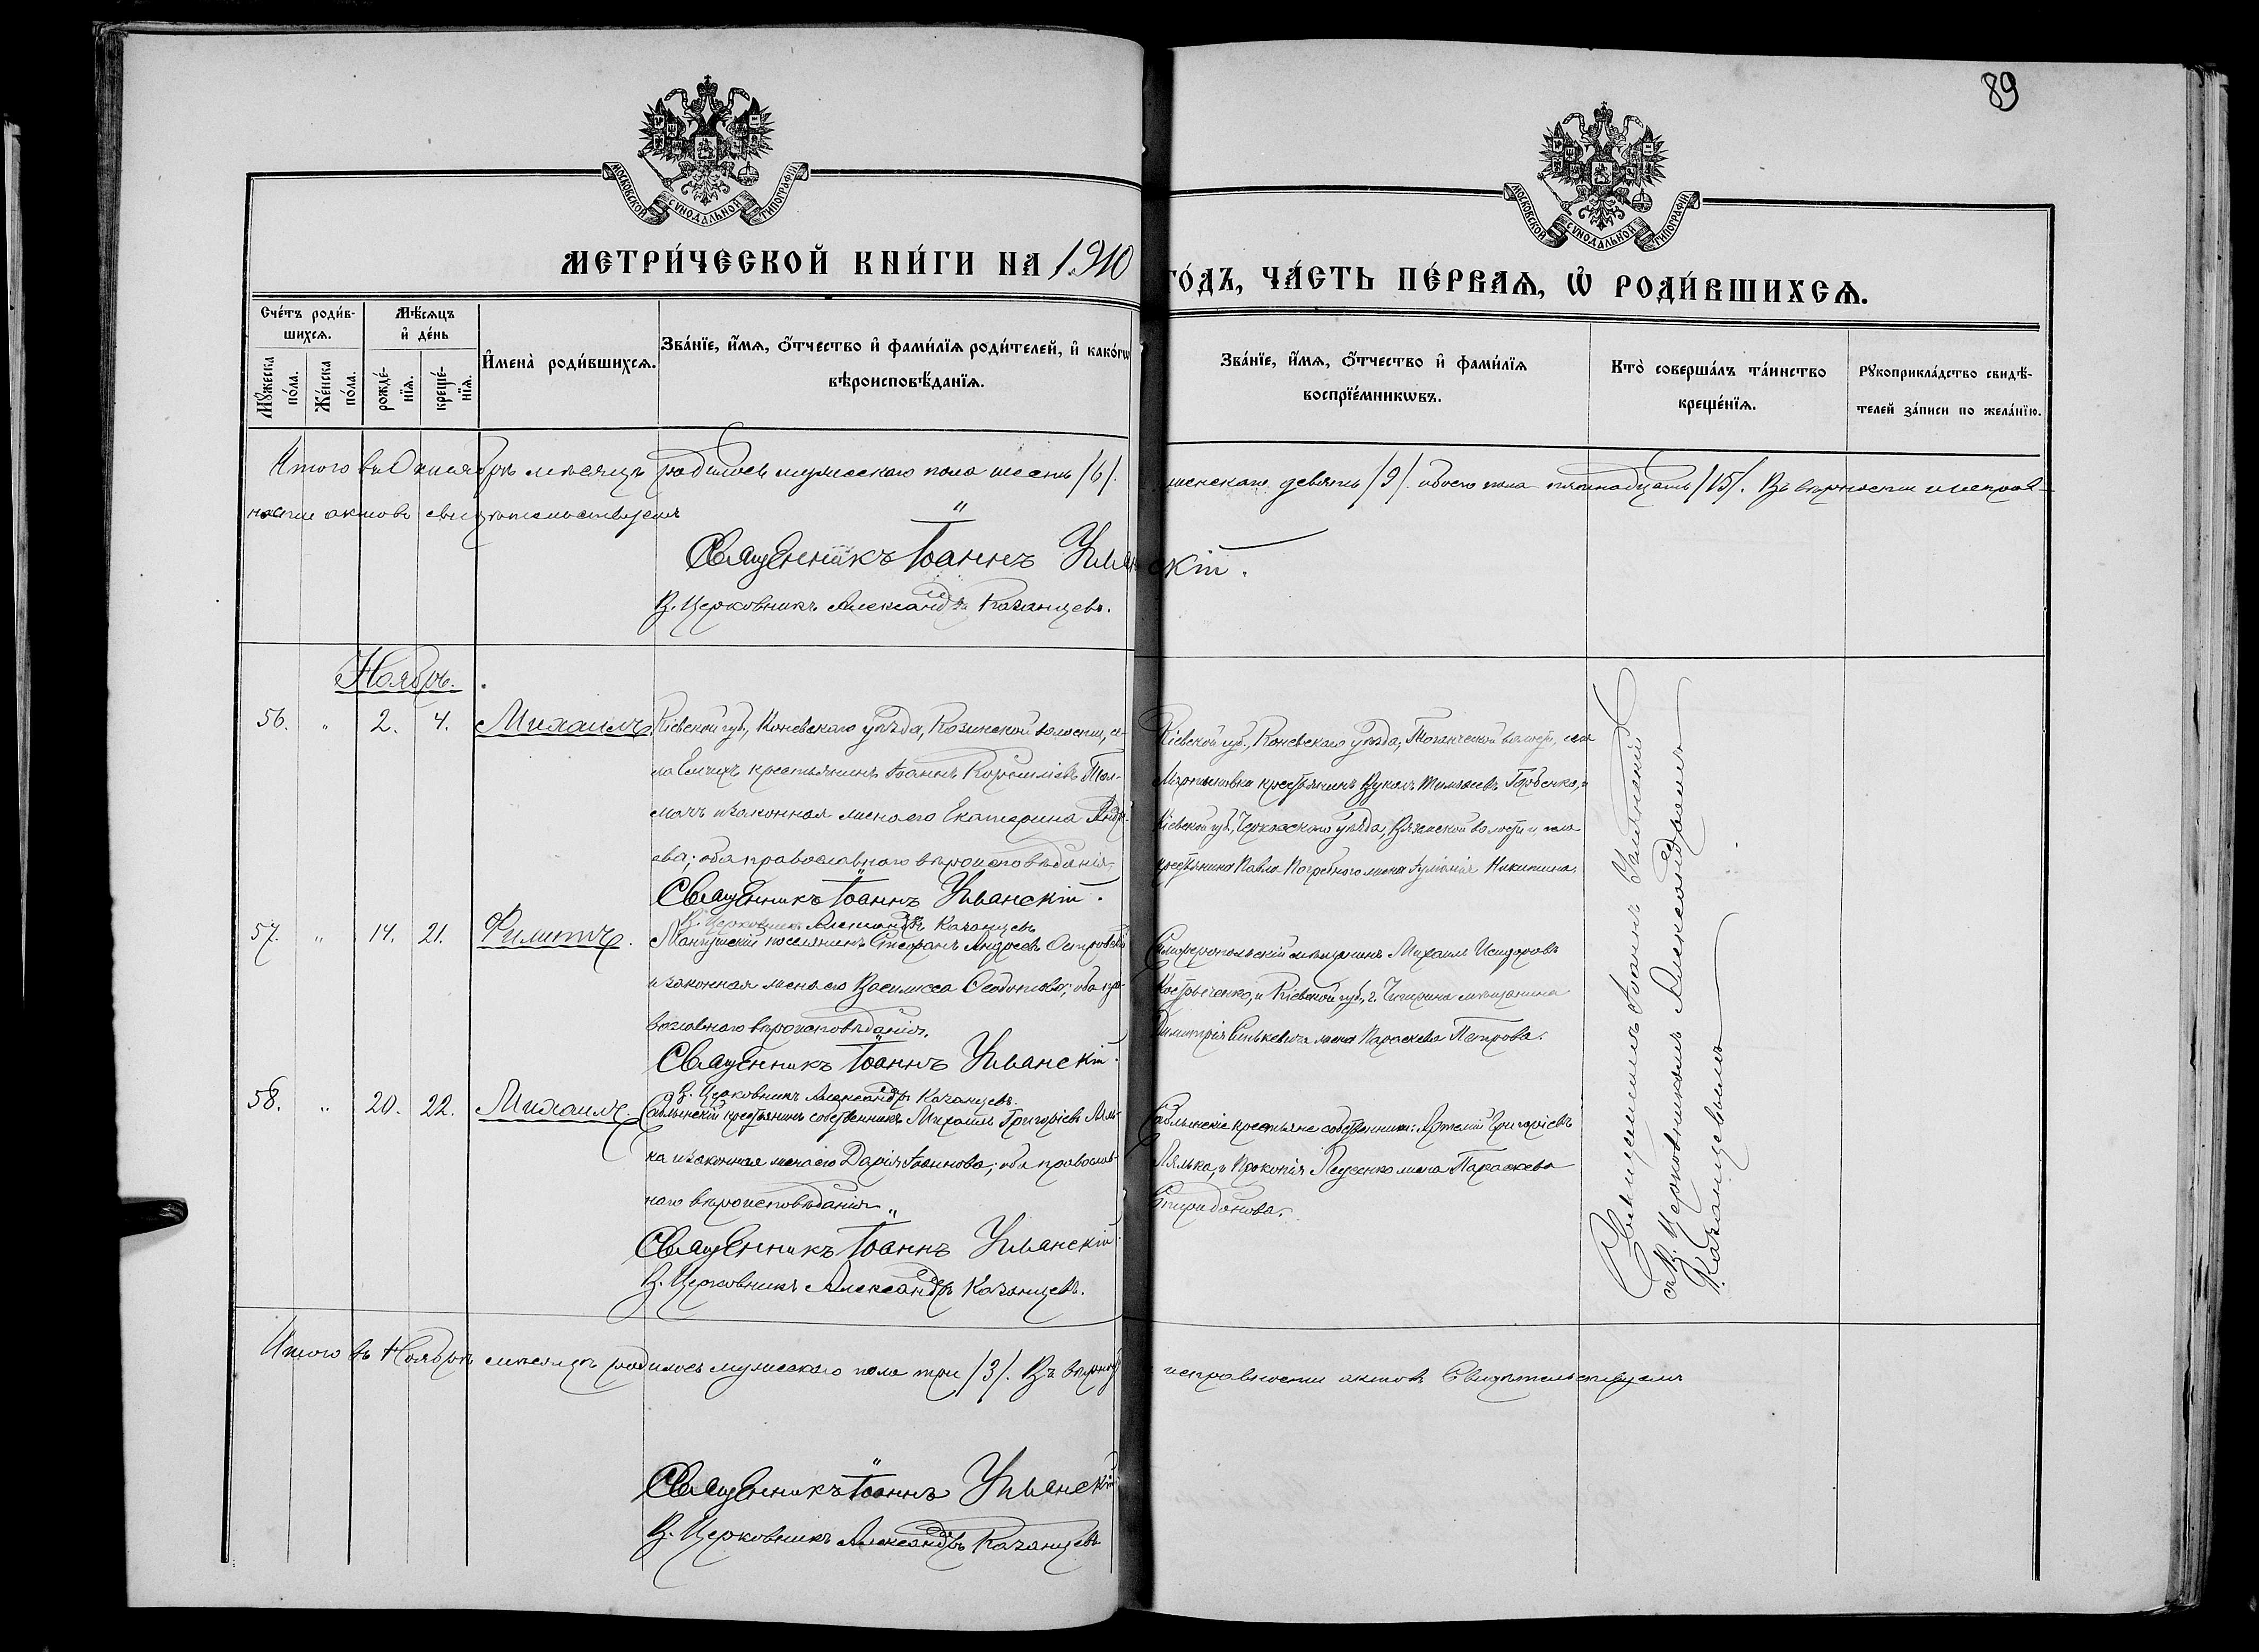 89
МОСКОВСКОЙ СѴНОДАЛЬНОЙ ТИПОГРАФІИ
МОСКОВСКОЙ СѴНОДАЛЬНОЙ ТИПОГРАФІИ
МЕТРИ́ЧЕСКОЙ КНИ́ГИ НА 1910 ГО́ДЪ, ЧА́СТЬ ПЕ́РВАѦ, Ѡ҆ РОДИ́ВШИХСѦ.
Сче́тъ роди́в-
шихсѧ.
Мꙋ́жеска
по́ла.
Же́нска
по́ла.
Мѣ́сѧцъ
и҆ де́нь
рожде́-
нїѧ.
креще́-
нїѧ.
И҆мена̀ роди́вшихсѧ.
Зва́нїе, и҆́мѧ, ѻ҆́тчество и҆ фами́лїѧ роди́телей, и҆ како́гѡ
вѣроисповѣ́данїѧ.
Зва́нїе, и҆́мѧ, ѻ҆́тчество и҆ фами́лїѧ
воспрїе́мникѡвъ.
Кто̀ соверша́лъ та́инство
креще́нїѧ.
Рꙋкоприкла́дство свидѣ́-
телей за́писи по жела́нїю.
Итого въ Октябрѣ мѣсяцѣ родилось мужескаго пола шесть /6/. женскаго девять /9/. обоего пола пятнадцать /15/. Въ вѣрности и исправ-
ности актовъ свидѣтельствуемъ
Священникъ Іоаннъ Уманскій.
В. Церковникъ Александръ Казанцевъ.
Ноябрь.
56. „ 2. 4. Михаилъ
Кіевской губ., Каневскаго уѣзда, Козинской волости, се-
ла Емчихъ крестьянинъ Іоаннъ Корниліевъ Тол-
мачъ и законная жена его Екатерина Андре-
ева; оба православнаго вѣроисповѣданія.
Священникъ Іоаннъ Уманскій.
В. Церковникъ Александръ Казанцевъ
Кіевской губ., Каневскаго уѣзда, Таганчской волости, села
Мартыновки крестьянинъ Вуколъ Тимофеевъ Горбенко, и
Кіевской губ., Черкасскаго уѣзда, Вязовской волости и села
крестьянина Павла Погребного жена Іуліанія Никитина.
57. „ 14. 21. Филиппъ.
Мангушскій поселянинъ Стефанъ Андреевъ Островскій
и законная жена его Василисса Ѳеодотова; оба пра-
вославнаго вѣроисповѣданія.
Священникъ Іоаннъ Уманскій.
В. Церковникъ Александръ Казанцевъ.
Симферопольскій мѣщанинъ Михаилъ Исидоровъ
и Кіевской губ., г. Чигирина мѣщанина
Димитрія Синькевича жена Параскева Петрова.
58. „ 20. 22. Михаилъ.
Саблынскій крестьянинъ собственникъ Михаилъ Григоріевъ Лял-
ка и законная жена его Дарія Іоаннова; оба православ-
наго вѣроисповѣданія „
Священникъ Іоаннъ Уманскій.
В. Церковникъ Александръ Казанцевъ.
Саблынскіе крестьяне собственники: Артемій Григоріевъ
Лялька, и Прокопія жена Параскева
Спиридонова.
Священникъ Іоаннъ Уманскій
съ В. Церковникомъ Александромъ
Казанцевымъ
Итого въ Ноябрѣ мѣсяцѣ родилось мужескаго пола три /3/. Въ вѣрности исправности актовъ свидѣтельствуемъ
Священникъ Іоаннъ Уманскій
В. Церковникъ Александръ Казанцевъ